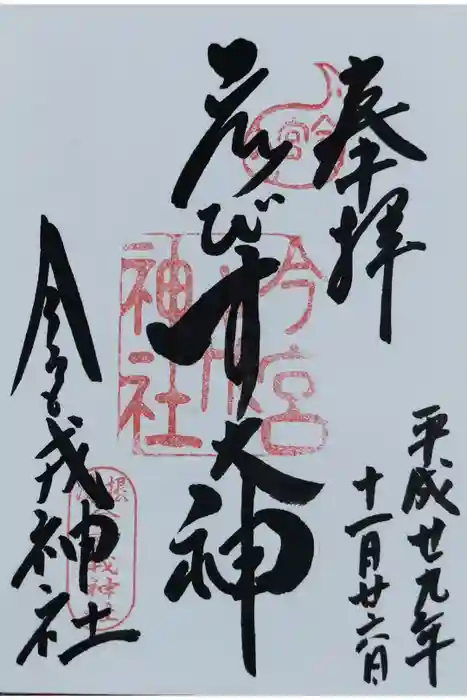 奉拝
平成廿九年
十一月廿六日
ゑびす大神
今宮戎神社
今宮
今宮
戎
神社